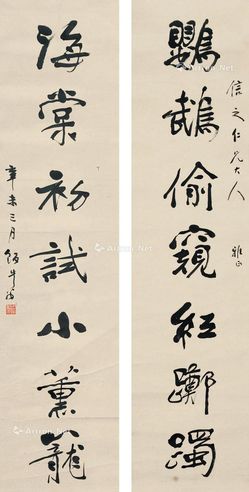 信之仁兄大人 雅正
鸚鵡偷窺紅躑躅
海棠初試小薰籠
辛未三月